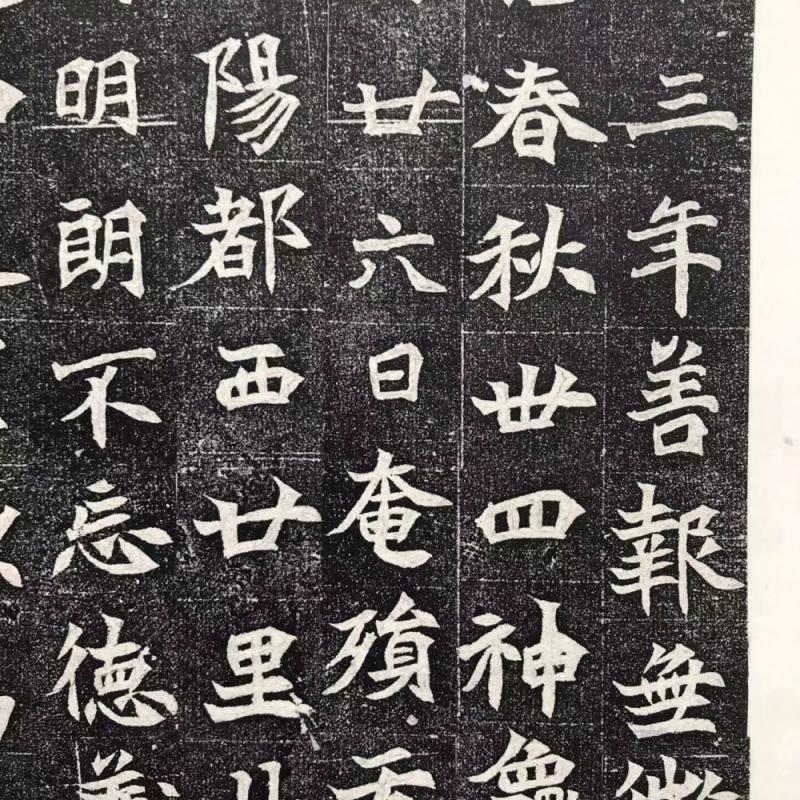 三年善報無
春秋丗四神
廿六日奄殞
陽都西廿里
明朗不忘徳